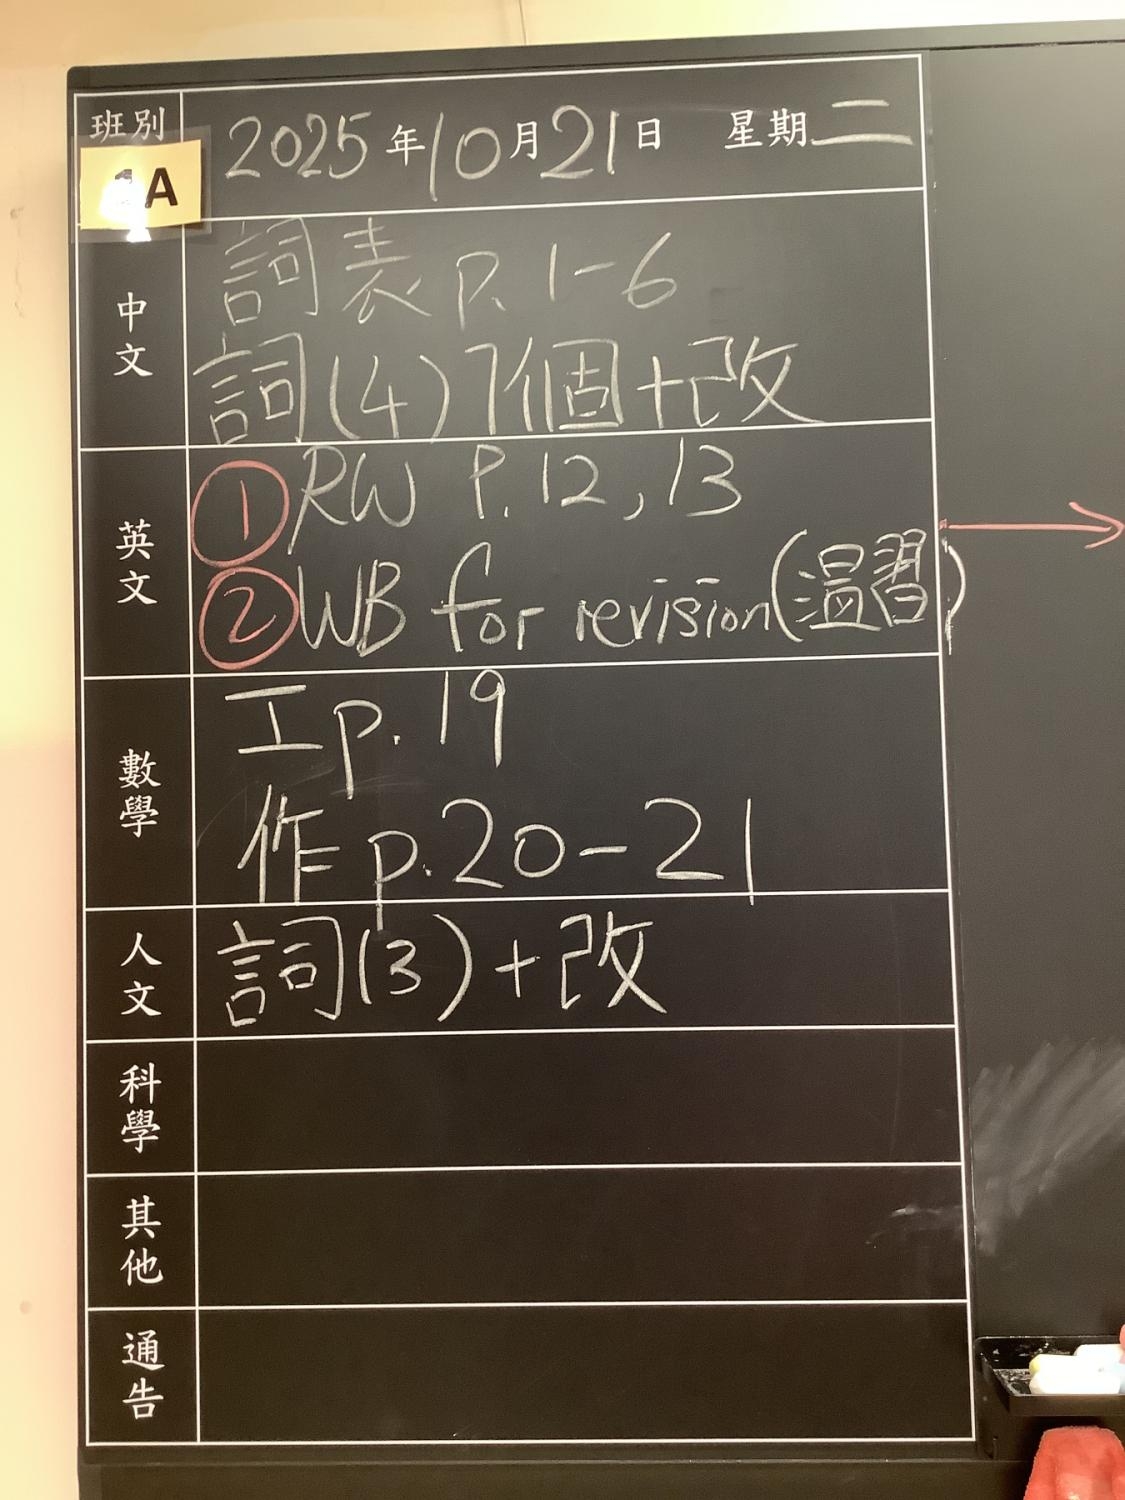 班別
2025年10月21日 星期二
A
中文
詞表 p. 1-6
詞(4) 7個+改
英文
① RW P. 12, 13
② WB for revision(温習)
數學
工 p. 19
作 p. 20-21
人文
詞(3)+改
科學
其他
通告